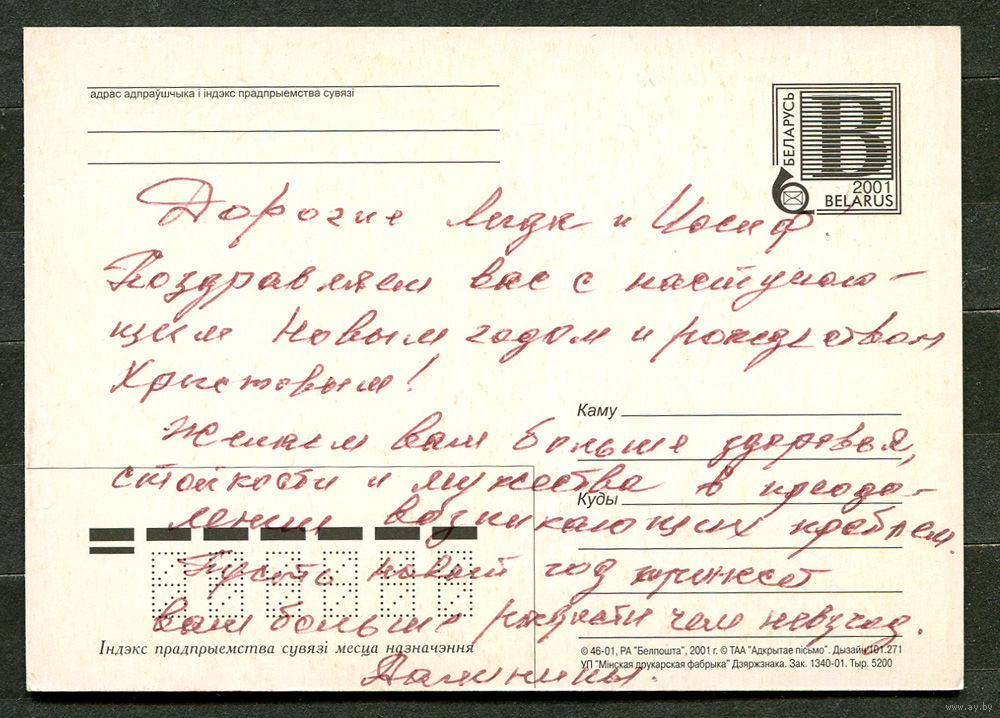 адрас адпраўшчыка і індэкс прадпрыемства сувязі
БЕЛАРУСЬ
B
2001
BELARUS
Дорогие Лида и Иосиф.
Поздравляем вас с наступаю-
щим Новым годом и рождеством
Христовым!
Каму
Желаем вам больше здоровья,
стойкости и мужества в преодо-
Куды
лении возникающих проблем.
Пусть новый год принесет
вам больше радости чем невзгод.
Індэкс прадпрыемства сувязі месца назначэння
© 46-01, РА "Белпошта", 2001 г. © ТАА "Адкрытае пісьмо". Дызайн 101.271
УП "Мінская друкарская фабрыка" Дзяржзнака. Зак. 1340-01. Тыр. 5200
www.ay.by